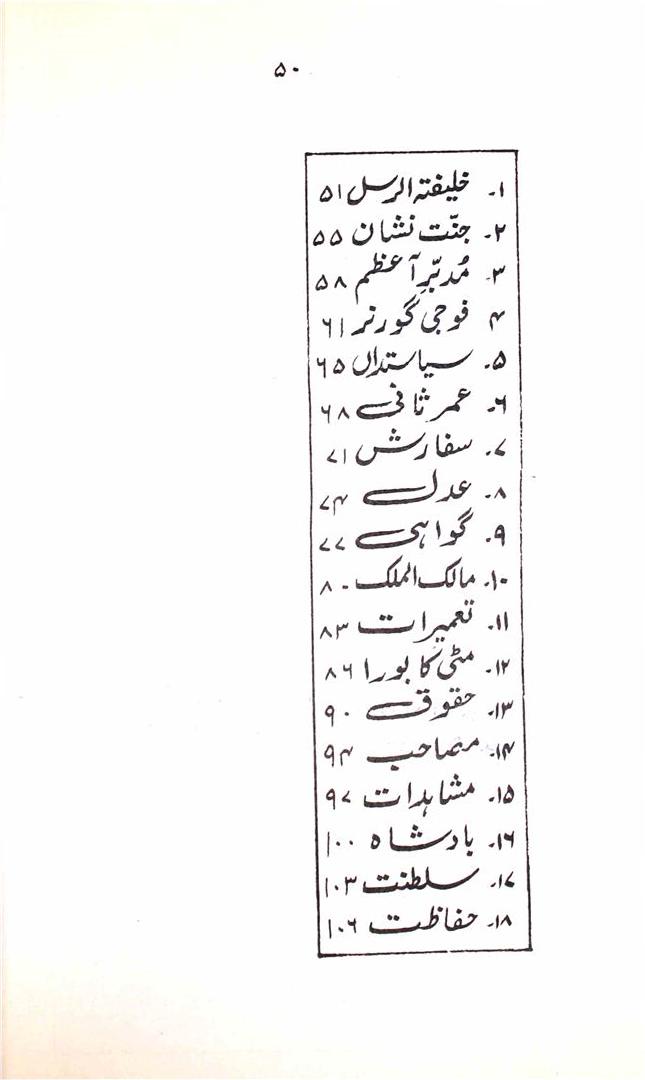 ۵۰
۱۔ خلیفتہ الرسل ۵۱
۲۔ جنّت نشان ۵۵
۳۔ مُدبّرِ آعظم ۵۸
۴ فوجی گورنر ۶۱
۵۔ سیاستداں ۶۵
۶۔ عمر ثانی ۶۸
۷۔ سفارش ۷۱
۸۔ عدل ۷۴
۹۔ گواہی ۷۷
۱۰۔ مالک الملک ۸۰
۱۱۔ تعمیرات ۸۳
۱۲۔ مٹی کا بورا ۸۶
۱۳۔ حقوق ۹۰
۱۴۔ مصاحب ۹۴
۱۵۔ مشاہدات ۹۷
۱۶۔ بادشاہ ۱۰۰
۱۷۔ سلطنت ۱۰۳
۱۸۔ حفاظت ۱۰۶